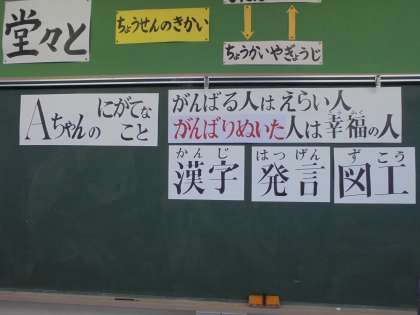 堂々と
ちょうせんのきかい
ちょうかいやぎょうじ
Aちゃんの にがてな こと
がんばる人は えらい人
がんばりぬいた人は幸福の人
こうふく
かんじ
漢字
はつげん
発言
ずこう
図工